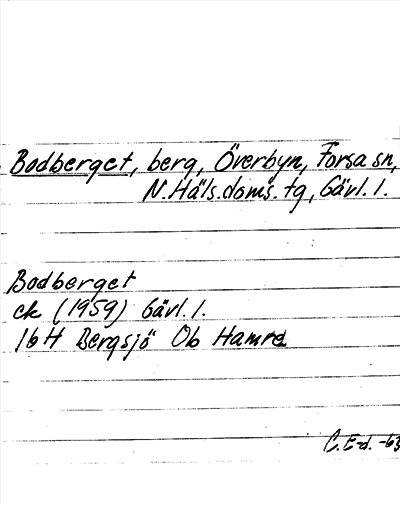 Bodberget, berg, Överbyn, Forsa sn,
N. Häls. doms. tg, Gävl. l.
Bodberget
ek (1959) Gävl. l.
16H Bergsjö Ob Hamra
C. E-d. -63